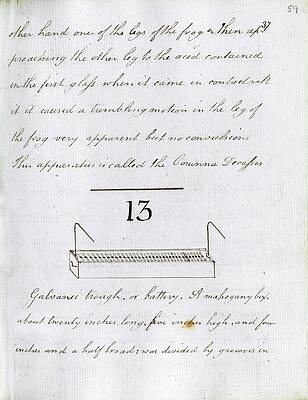 59
37
other hand one of the legs of the frog & then ap
proaching the other leg to the acid contained
in the first glass when it came in contact with
it it caused a trembling motion in the leg of
the frog very apparent but no convulsions
This apparatus is called the Couronne De
13
Galvanic trough, or battery. A mahogany box,
about twenty inches long, five inches high, and four
inches and a half broad; was divided by grooves in